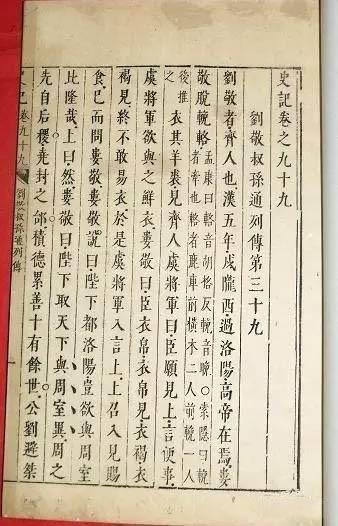 史記卷之九十九
劉敬叔孫通列傳第三十九
劉敬者齊人也漢五年戍隴西過洛陽高帝在焉婁
敬脫輓輅孟康曰輅音胡格反輓音晚○索隱曰輓
者牽也輅者鹿車前橫木二人前輓一人
後推衣其羊裘見齊人虞將軍曰臣願見上言便事
虞將軍欲與之鮮衣婁敬曰臣衣帛衣帛見衣褐衣
褐見終不敢易衣於是虞將軍入言上上召入見賜
食已而問婁敬婁敬說曰陛下都洛陽豈欲與周室
比隆哉上曰然婁敬曰陛下取天下與周室異周之
先自后稷堯封之邰積德累善十有餘世公劉避桀
史記 卷九十九 劉敬叔孫通列傳 一